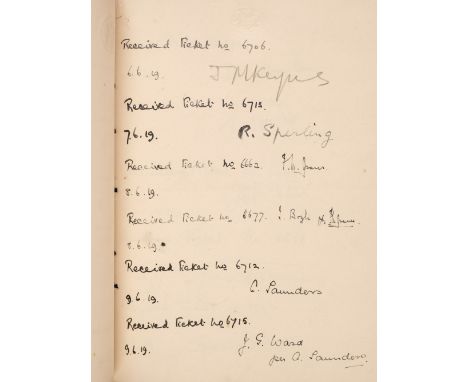 Received Ticket No 6706.
6.6.19. J M Keynes
Received Ticket No 6713.
7.6.19. R. Sperling
Received Ticket No 6662.
8.6.19.
Received Ticket No 6677.
8.6.19.
Received Ticket No 6712.
9.6.19. C. Saunders
Received Ticket No 6715.
9.6.19. J. G. Ward
per C. Saunders.